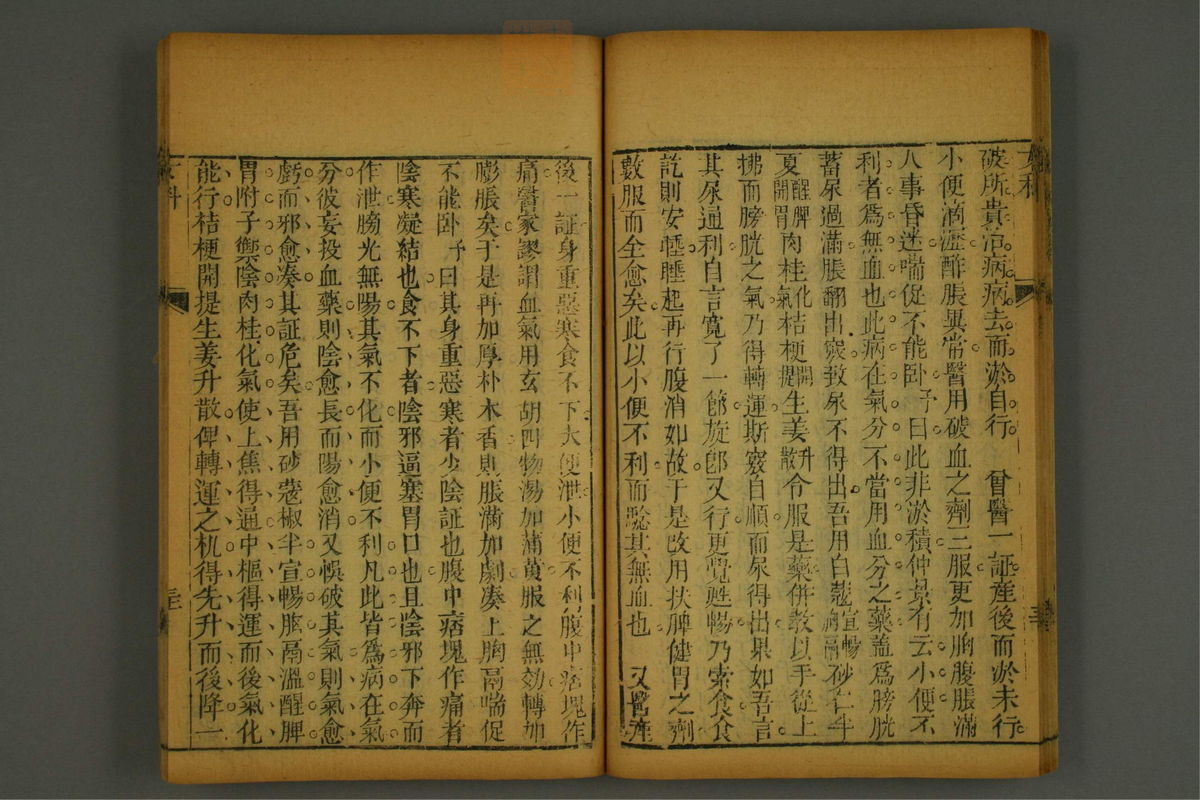 女科
破所貴治病病去而淤自行　曾醫一証產後而淤未行
小便滴瀝酢脹異常醫用破血之劑三服更加胸腹脹滿
人事昏迷喘促不能卧予曰此非淤積仲景有云小便不
利者爲無血也此病在氣分不當用血分之藥蓋爲膀胱
蓄尿過滿脹翻出竅致尿不得出吾用白蔻宣暢胸膈砂仁半
夏醒脾開胃肉桂化氣桔梗開提生姜升散令服是藥併敎以手從上
拂而膀胱之氣乃得轉運斯竅自順而尿得出果如吾言
其尿通利自言寬了一節旋卽又行更覺甦暢乃索食食
訖則安睡睡起再行腹消如故于是改用扶脾健胃之劑
數服而全愈矣此以小便不利而驗其無血也　又醫產
後一証身重惡寒食不下大便泄小便不利腹中痞塊作
痛醫家謬謂血氣用玄胡四物湯加蒲黃服之無効轉加
膨脹矣于是再加厚朴木香則脹滿加劇凑上胸膈喘促
不能卧予曰其身重惡寒者少陰証也腹中痞塊作痛者
陰寒凝結也食不下者陰邪逼塞胃口也且陰邪下奔而
作泄膀光無陽其氣不化而小便不利凡此皆爲病在氣
分彼妄投血藥則陰愈長而陽愈消又悞破其氣則氣愈
虧而邪愈凑其証危矣吾用砂蔻椒半宣暢胸膈溫醒脾
胃附子禦陰肉桂化氣使上焦得通中樞得運而後氣化
能行桔梗開提生姜升散俾轉運之机得先升而後降一
女科
三